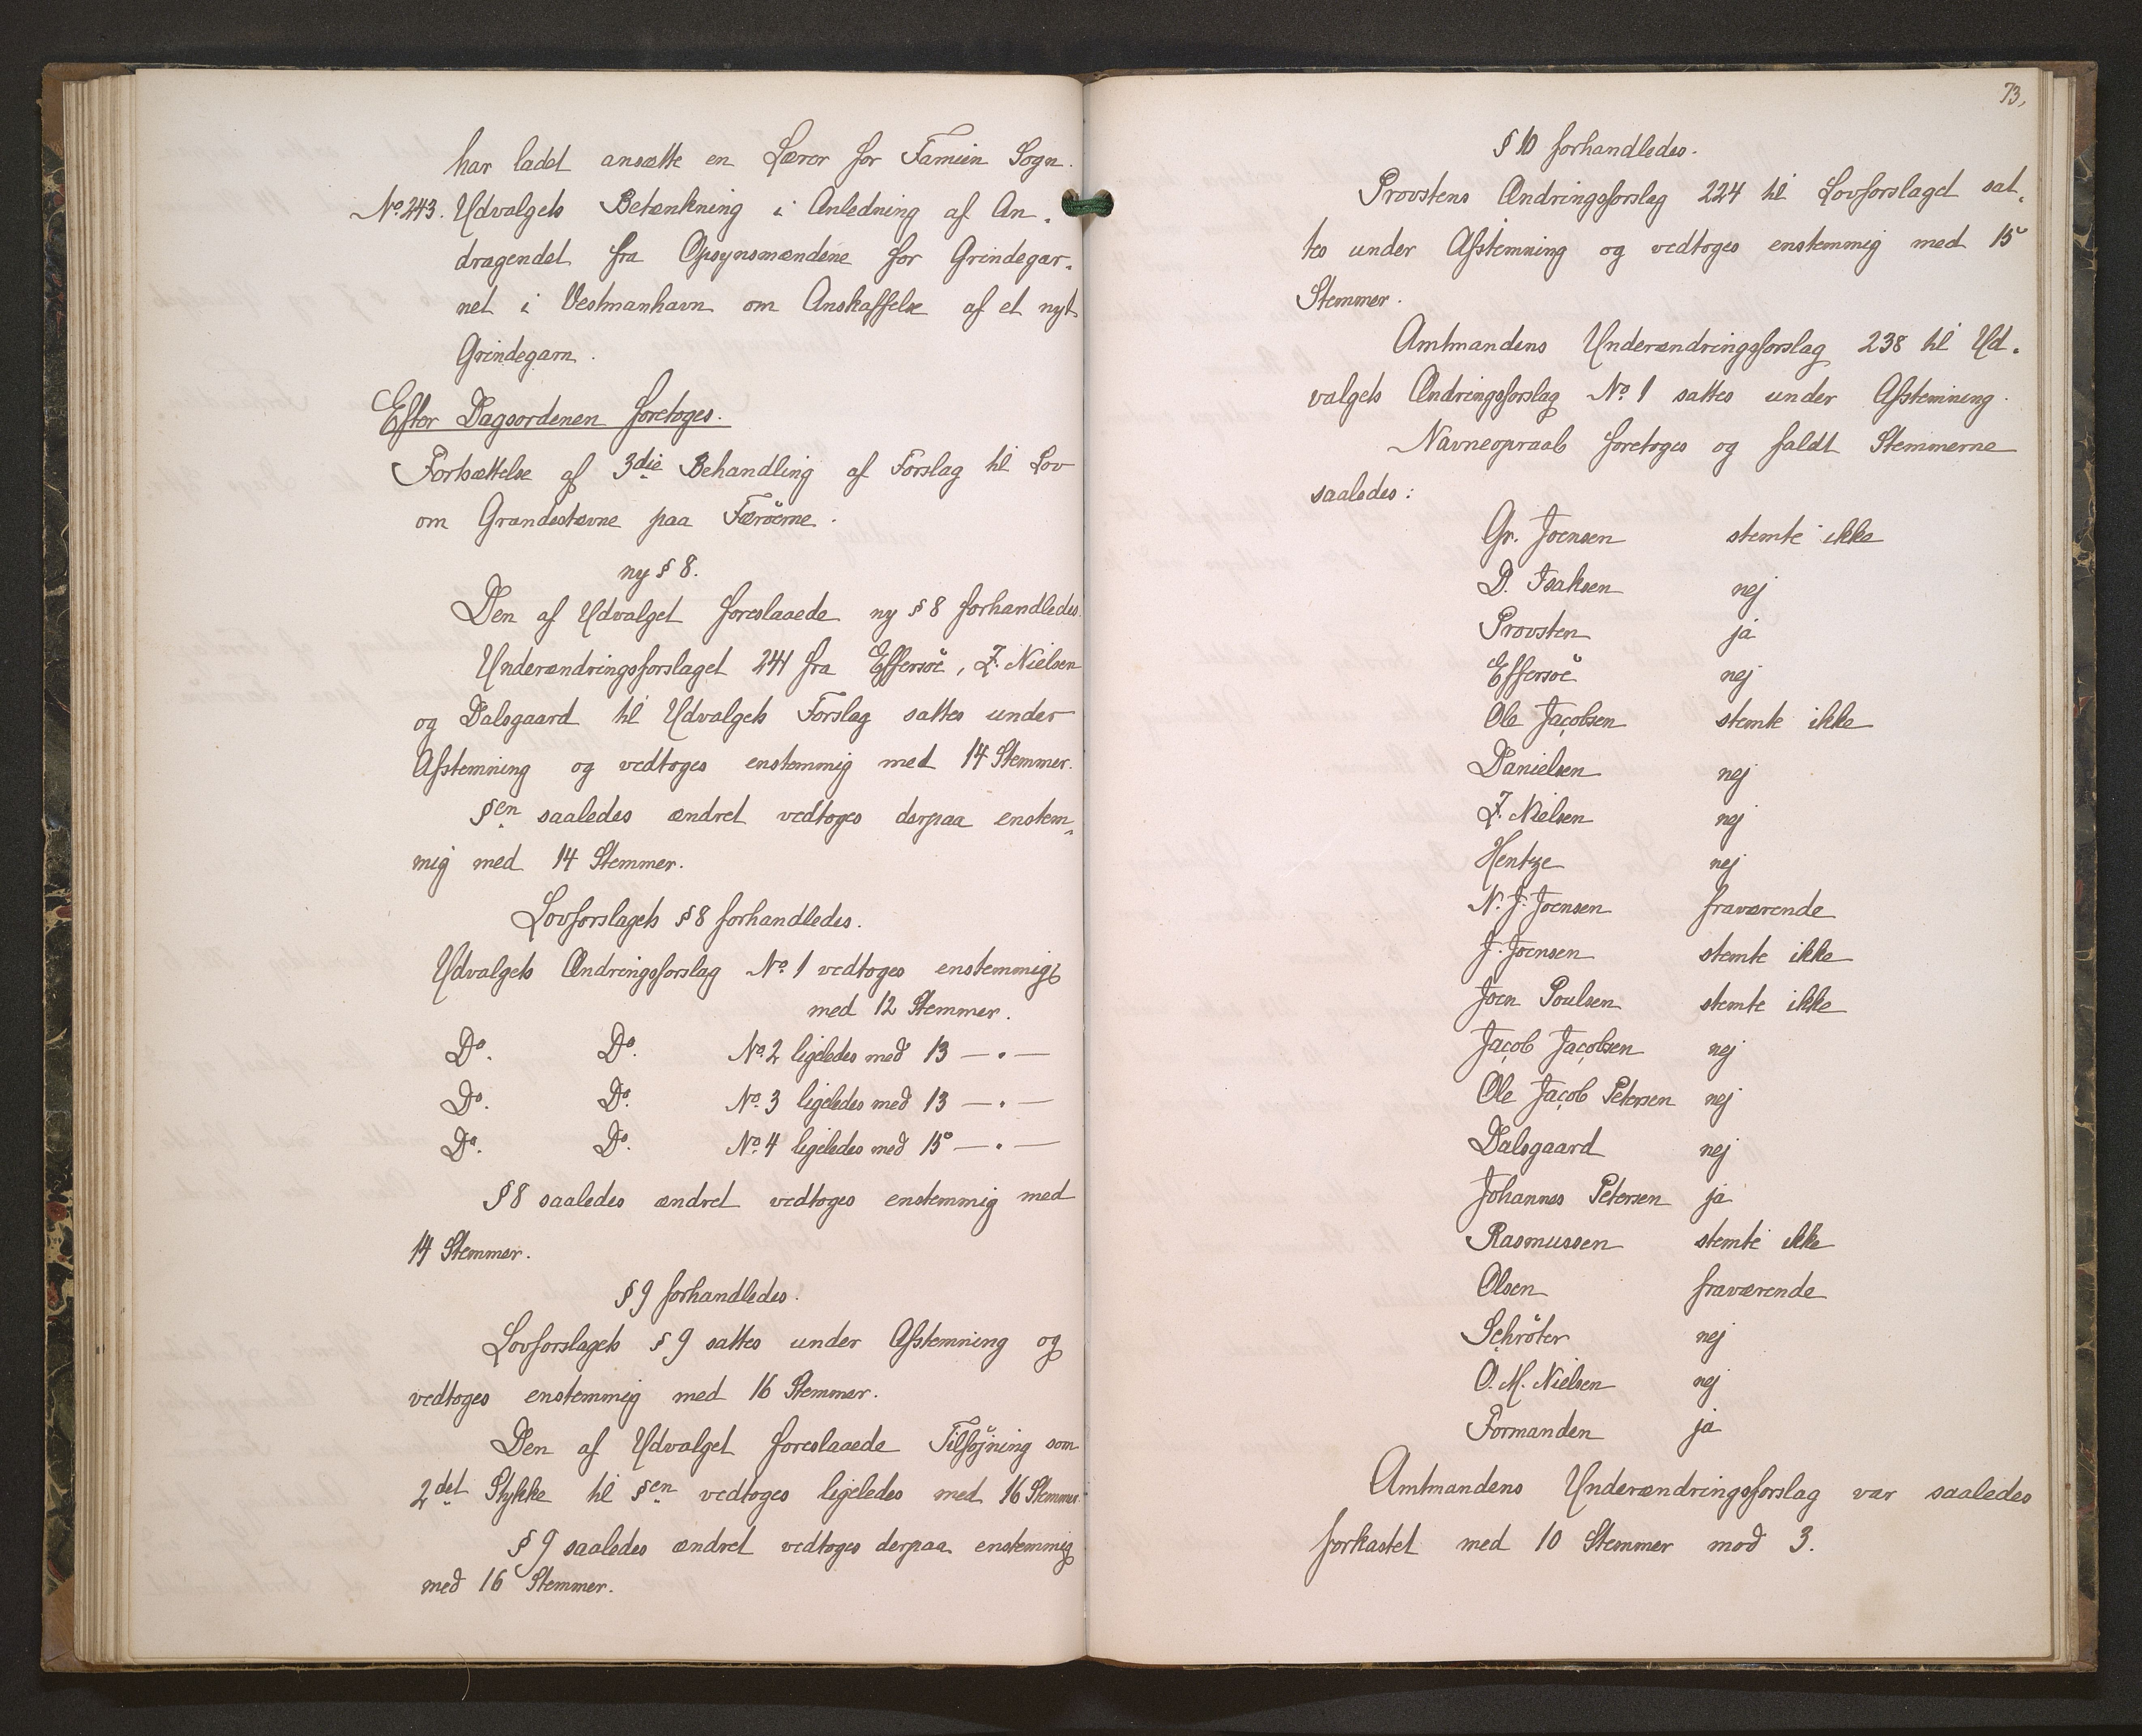 har ladet ansætte en Lærer for Famien Sogn.
No 243. Udvalgets Betænkning i Anledning af An-
dragendet fra Opsynsmændene for Grindegar-
net i Vestmanhavn om Anskaffelse af et nyt
Grindegarn.
Efter Dagsordenen foretoges.
Fortsættelse af 3die Behandling af Forslag til Lov
om Grandestævne paa Færöerne.
ny § 8.
Den af Udvalget foreslaaede ny § 8 forhandledes.
Underændringsforslaget 241 fra Effersöe, Z. Nielsen
og Dalsgaard til Udvalgets Forslag sattes under
Afstemning og vedtoges enstemmig med 14 Stemmer.
§en saaledes ændret vedtoges derpaa enstem-
mig med 14 Stemmer.
Lovforslagets § 8 forhandledes.
Udvalgets Ændringsforslag No. 1 vedtoges enstemmigt
med 12 Stemmer.
Do. Do. No. 2 ligeledes med 13 — " —
Do. Do. No. 3 ligeledes med 13 — " —
Do. Do. No. 4 ligeledes med 15 — " —
§ 8 saaledes ændret vedtoges enstemmig med
14 Stemmer.
§ 9 forhandledes.
Lovforslagets § 9 sattes under Afstemning og
vedtoges enstemmig med 16 Stemmer.
Den af Udvalget foreslaaede Tilföjning som
2det Stykke til §en vedtoges ligeledes med 16 Stemmer.
§ 9 saaledes ændret vedtoges derpaa enstemmig
med 16 Stemmer.
73,
§ 10 forhandledes.
Provstens Ændringsforslag 224 til Lovforslaget sat-
tes under Afstemning og vedtoges enstemmig med 15
Stemmer.
Amtmandens Underændringsforslag 238 til Ud-
valgets Ændringsforslag No. 1 sattes under Afstemning.
Navneopraab foretoges og faldt Stemmerne
saaledes:
Gr. Joensen stemte ikke
D. Isaksen nej
Provsten ja
Effersöe nej
Ole Jacobsen stemte ikke
Danielsen nej
Z. Nielsen nej
Hentze nej
N. J. Joensen fraværende
J. Joensen stemte ikke
Joen Poulsen stemte ikke
Jacob Jacobsen nej
Ole Jacob Petersen nej
Dalsgaard nej
Johannes Petersen ja
Rasmussen stemte ikke
Olsen fraværende
Schröter nej
O. M. Nielsen nej
Formanden ja
Amtmandens Underændringsforslag var saaledes
forkastet med 10 Stemmer mod 3.